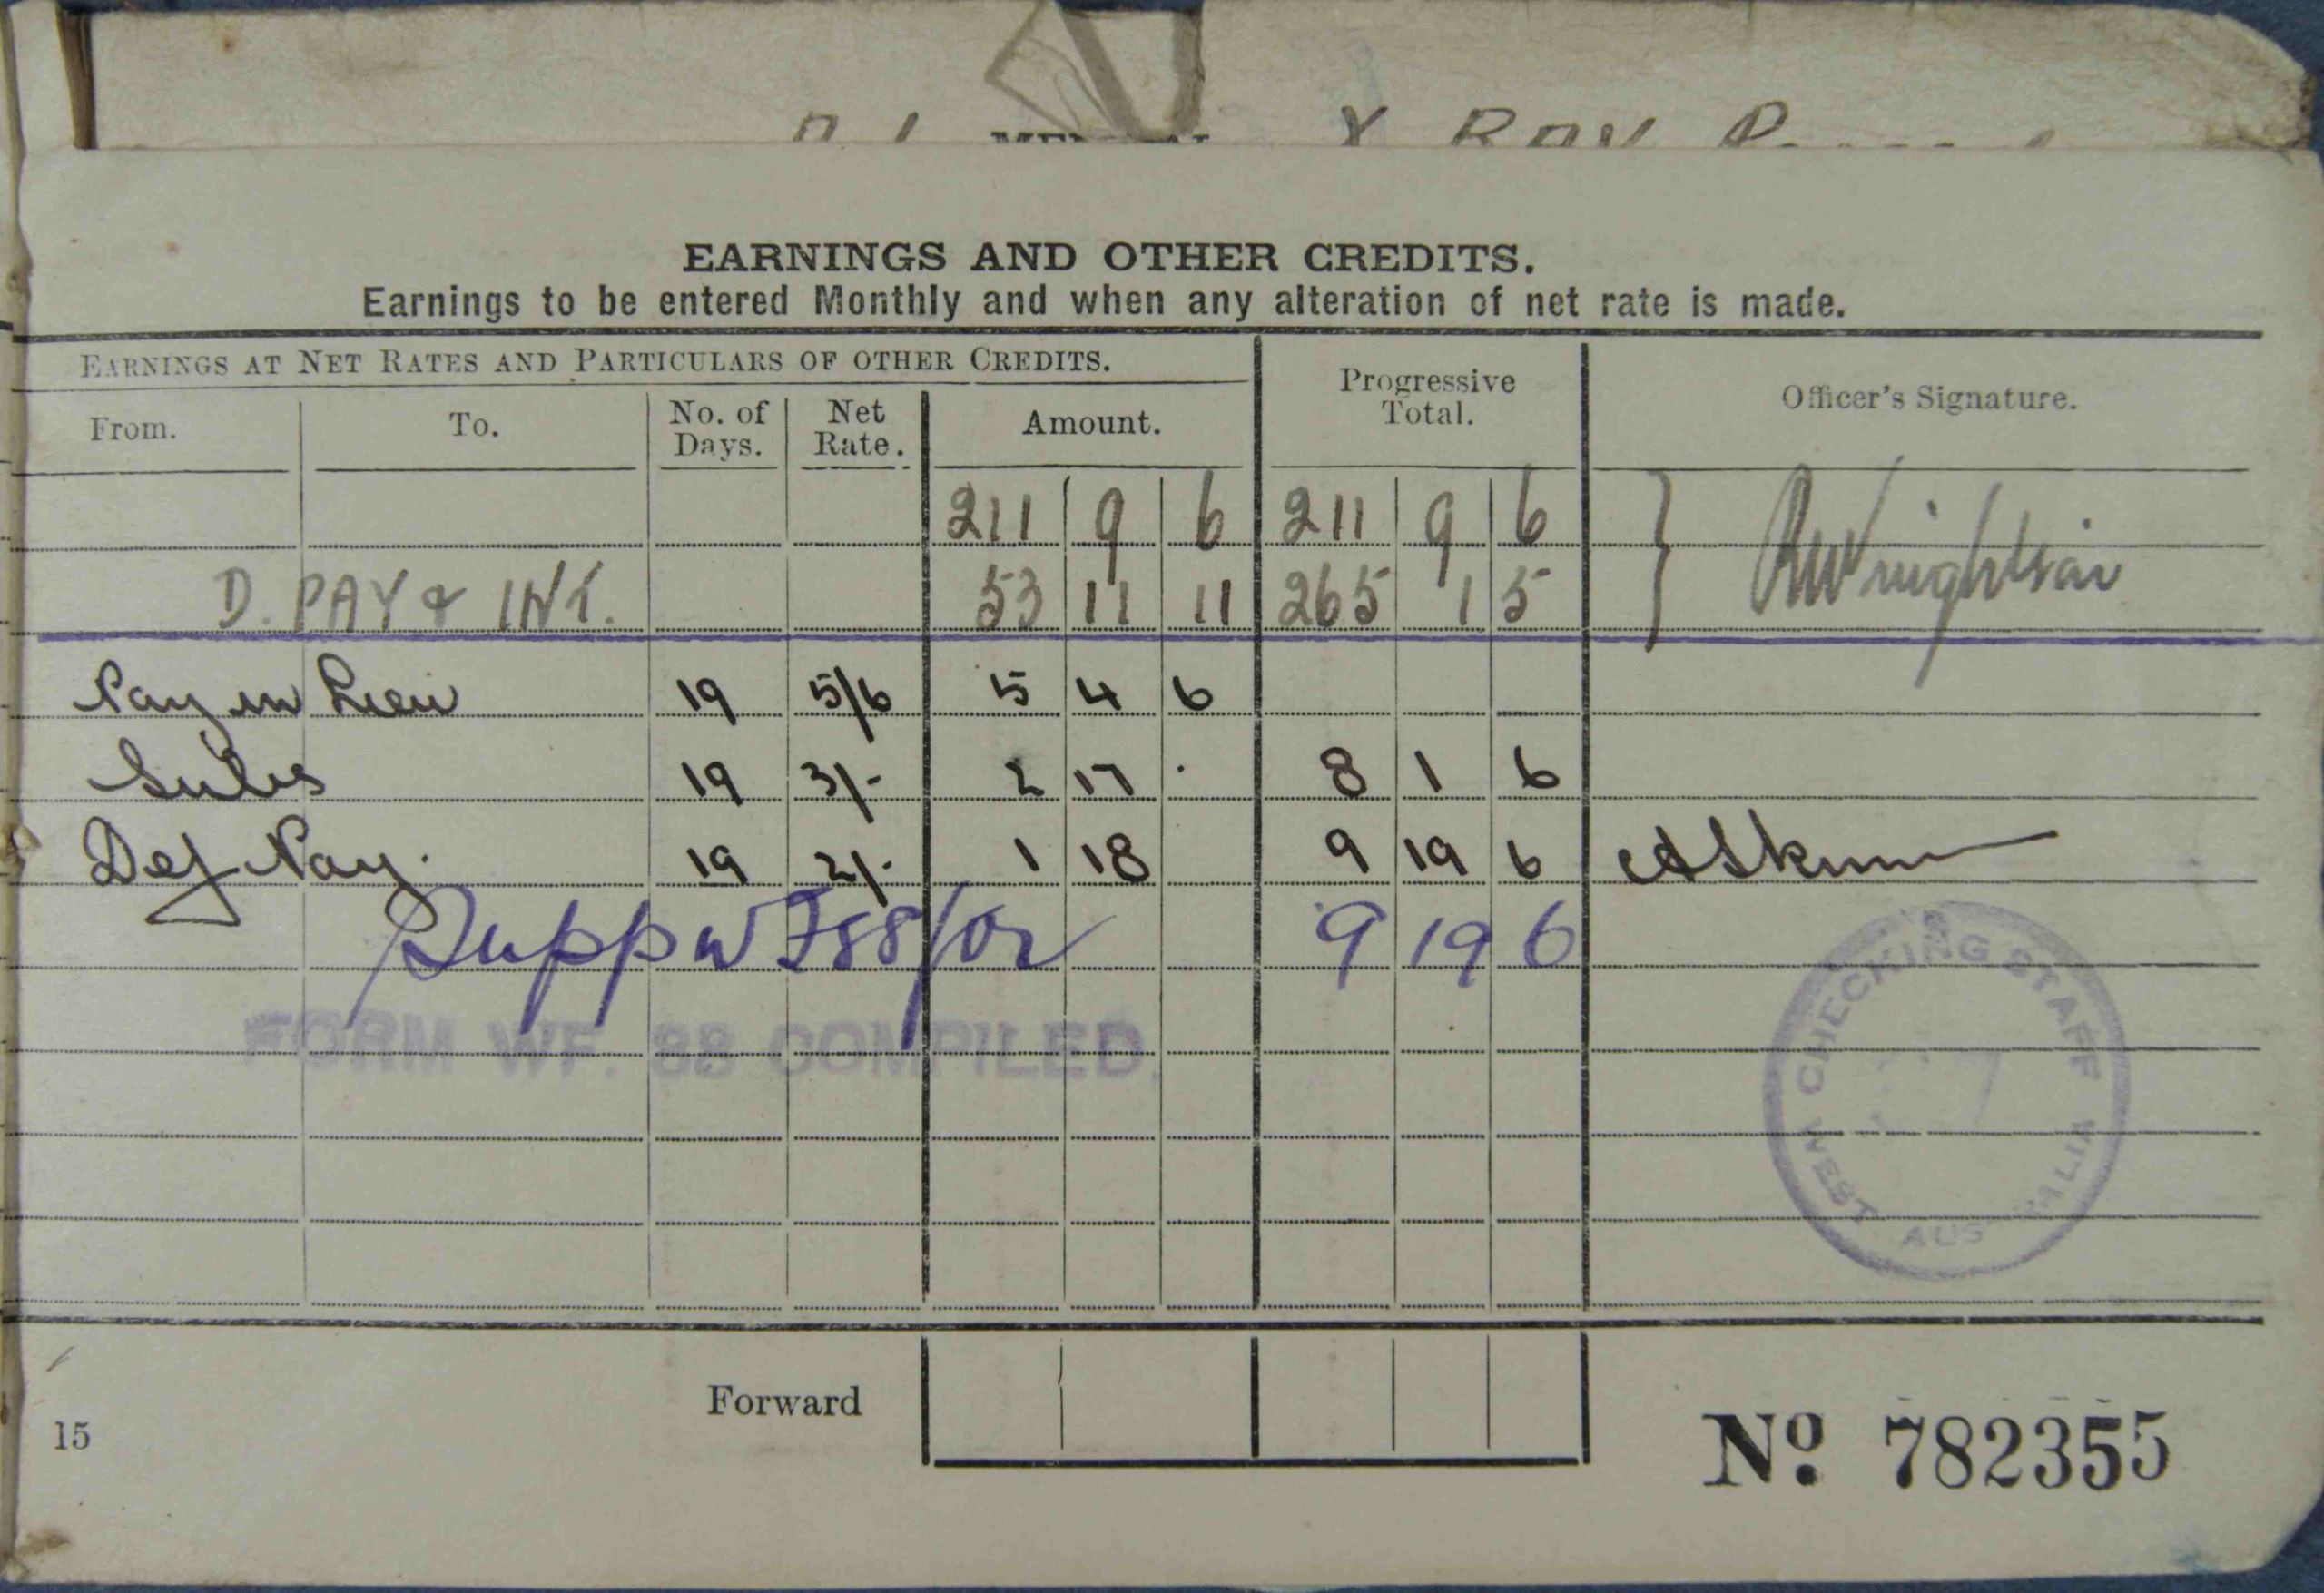 X RAY
EARNINGS AND OTHER CREDITS.
Earnings to be entered Monthly and when any alteration of net rate is made.
EARNINGS AT NET RATES AND PARTICULARS OF OTHER CREDITS.
Progressive Total.
Officer's Signature.
From. To. No. of Days. Net Rate. Amount.
211 9 6 211 9 6
D. PAY & INT. 53 11 11 265 1 5
Pay in Lieu 19 5/6 5 4 6
Subs 19 3/- 2 17 . 8 1 6
Def Pay. 19 2/- 1 18 9 19 6
Supp 9 19 6
FORM WF. 88 COMPILED.
CHECKING STAFF
WEST AUSTRALIA
Forward
15
No. 782355